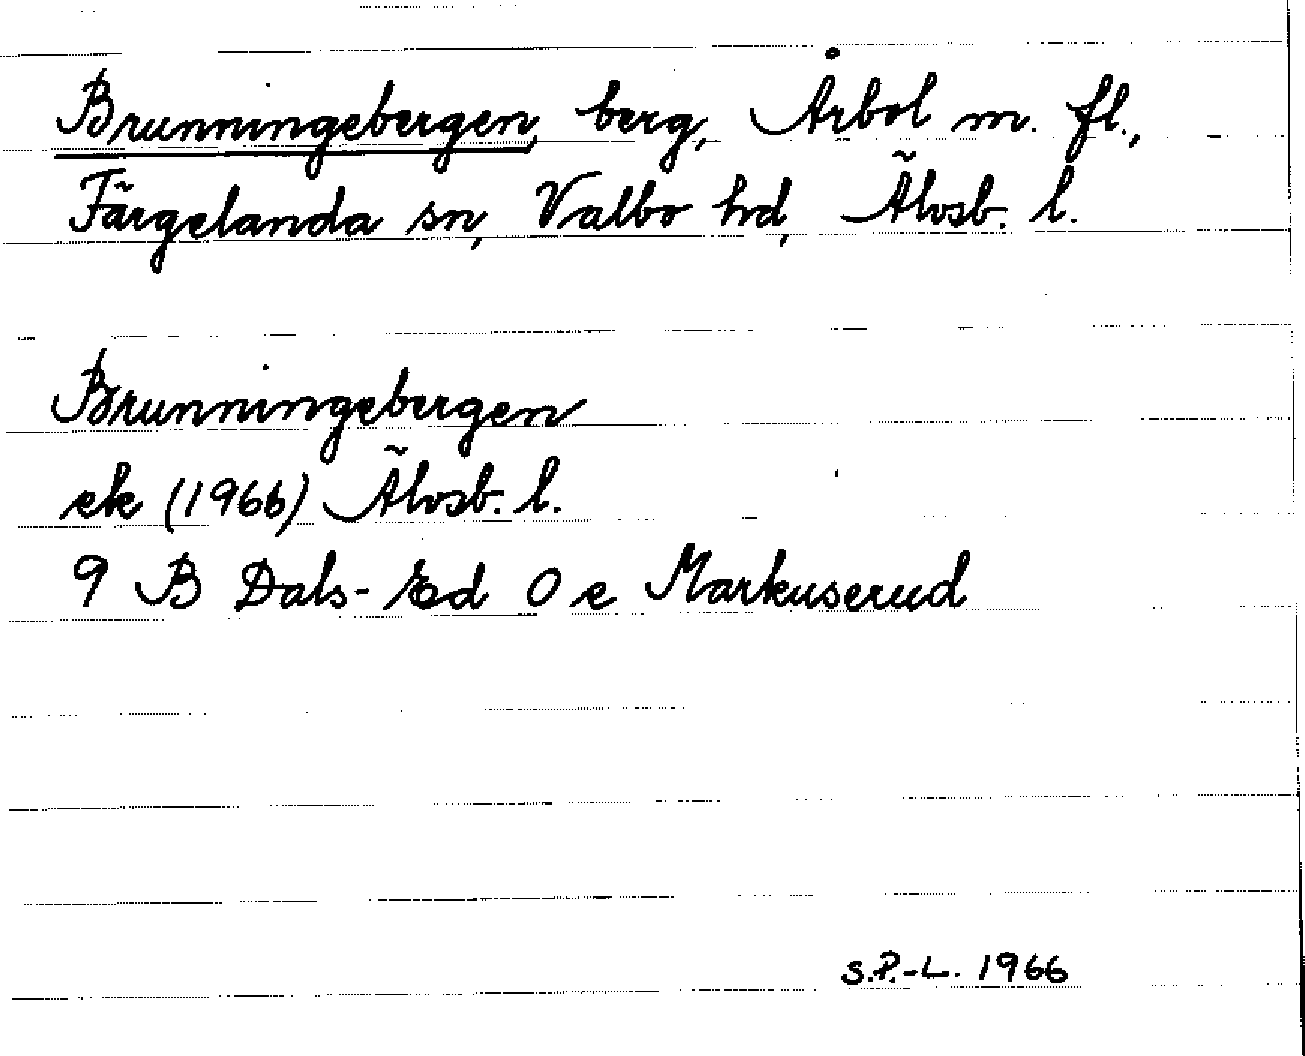 Brunningebergen, berg, Årbol m. fl.,
Färgelanda sn, Valbo hd, Älvsb. l.
Brunningebergen
ek (1966) Älvsb. l.
9 B Dals-Ed 0 e Markuserud
S.P.-L. 1966